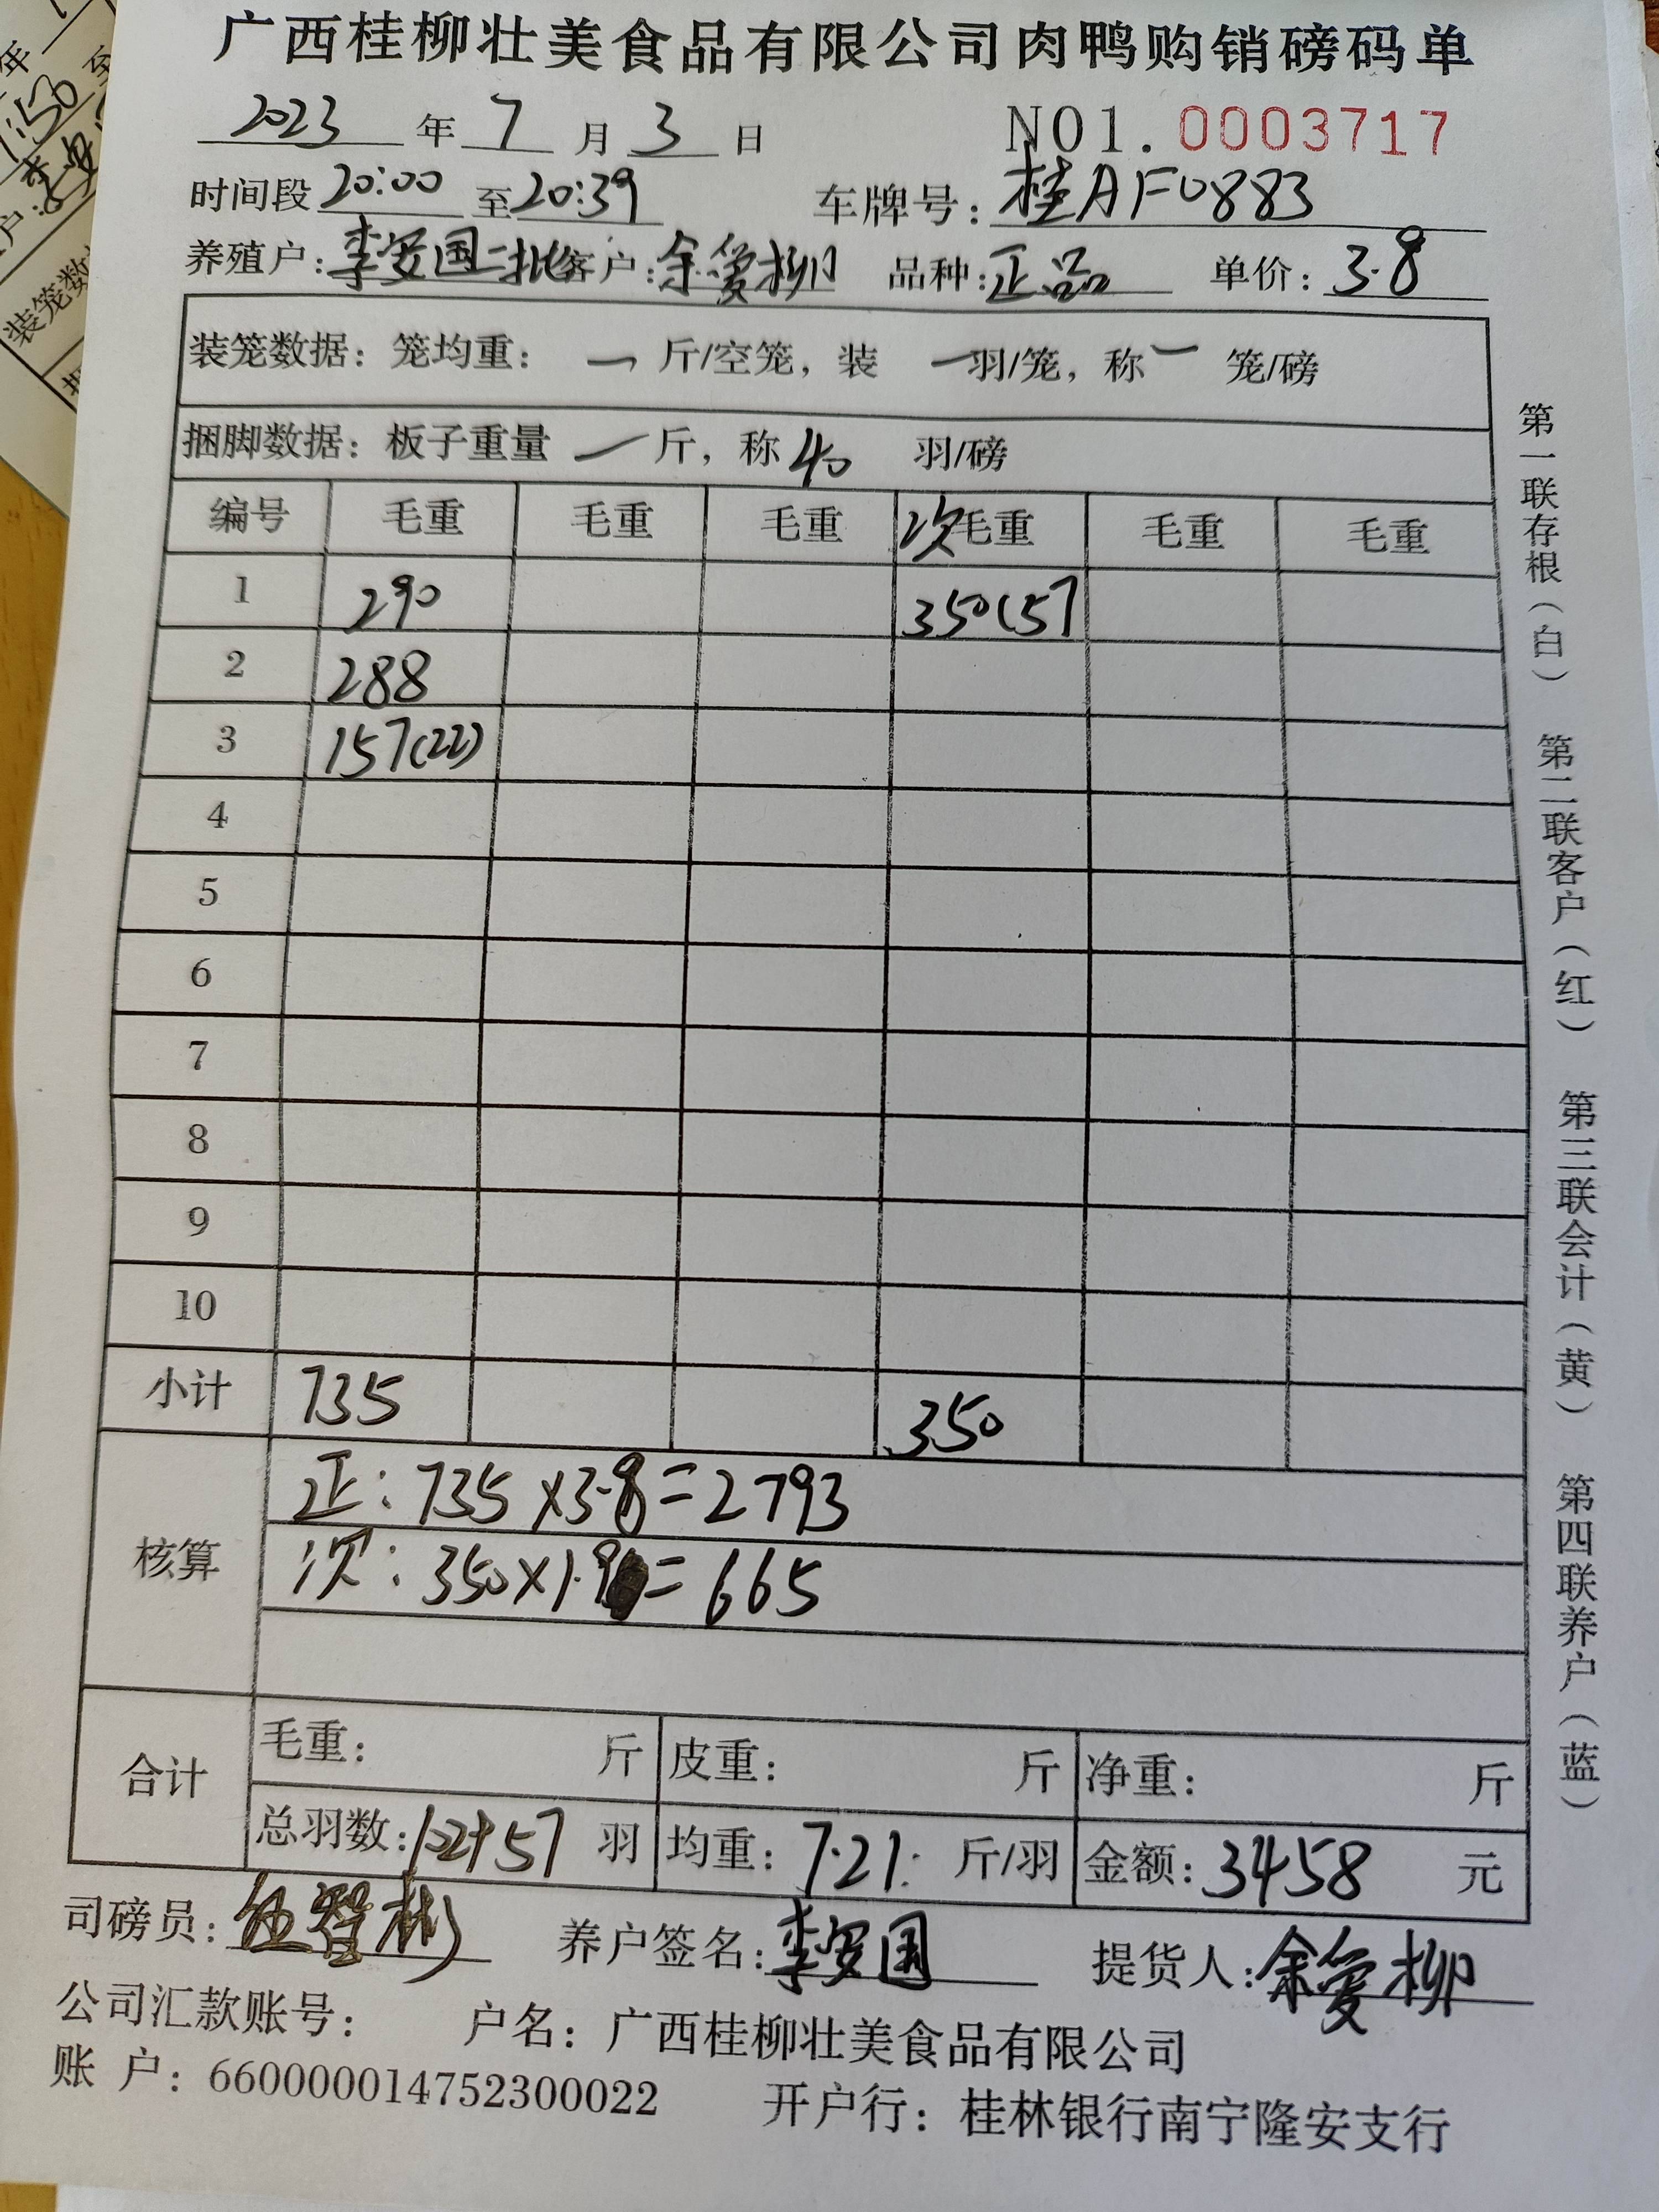 广西桂柳壮美食品有限公司肉鸭购销磅码单
2023 年 7 月 3 日 NO1. 0003717
时间段 20:00 至 20:39 车牌号: 桂AF0883
养殖户: 李安国二批 客户: 余爱柳 品种: 正品 单价: 3.8
装笼数据: 笼均重: 一 斤/空笼, 装 一 羽/笼, 称 一 笼/磅
捆脚数据: 板子重量 一 斤, 称 40 羽/磅
编号 毛重 毛重 毛重 次毛重 毛重 毛重
1 290 350(57
2 288
3 157(22)
4
5
6
7
8
9
10
小计 735 350
核算
正: 735×3.8=2793
次: 350×1.9=665
合计
毛重: 斤 皮重: 斤 净重: 斤
总羽数: 102+57 羽 均重: 7.21 斤/羽 金额: 3458 元
司磅员: 养户签名: 李安国 提货人: 余爱柳
公司汇款账号: 户名: 广西桂柳壮美食品有限公司
账 户: 660000014752300022 开户行: 桂林银行南宁隆安支行
第一联存根(白) 第二联客户(红) 第三联会计(黄) 第四联养户(蓝)
年
1:50 至
户:
装笼数